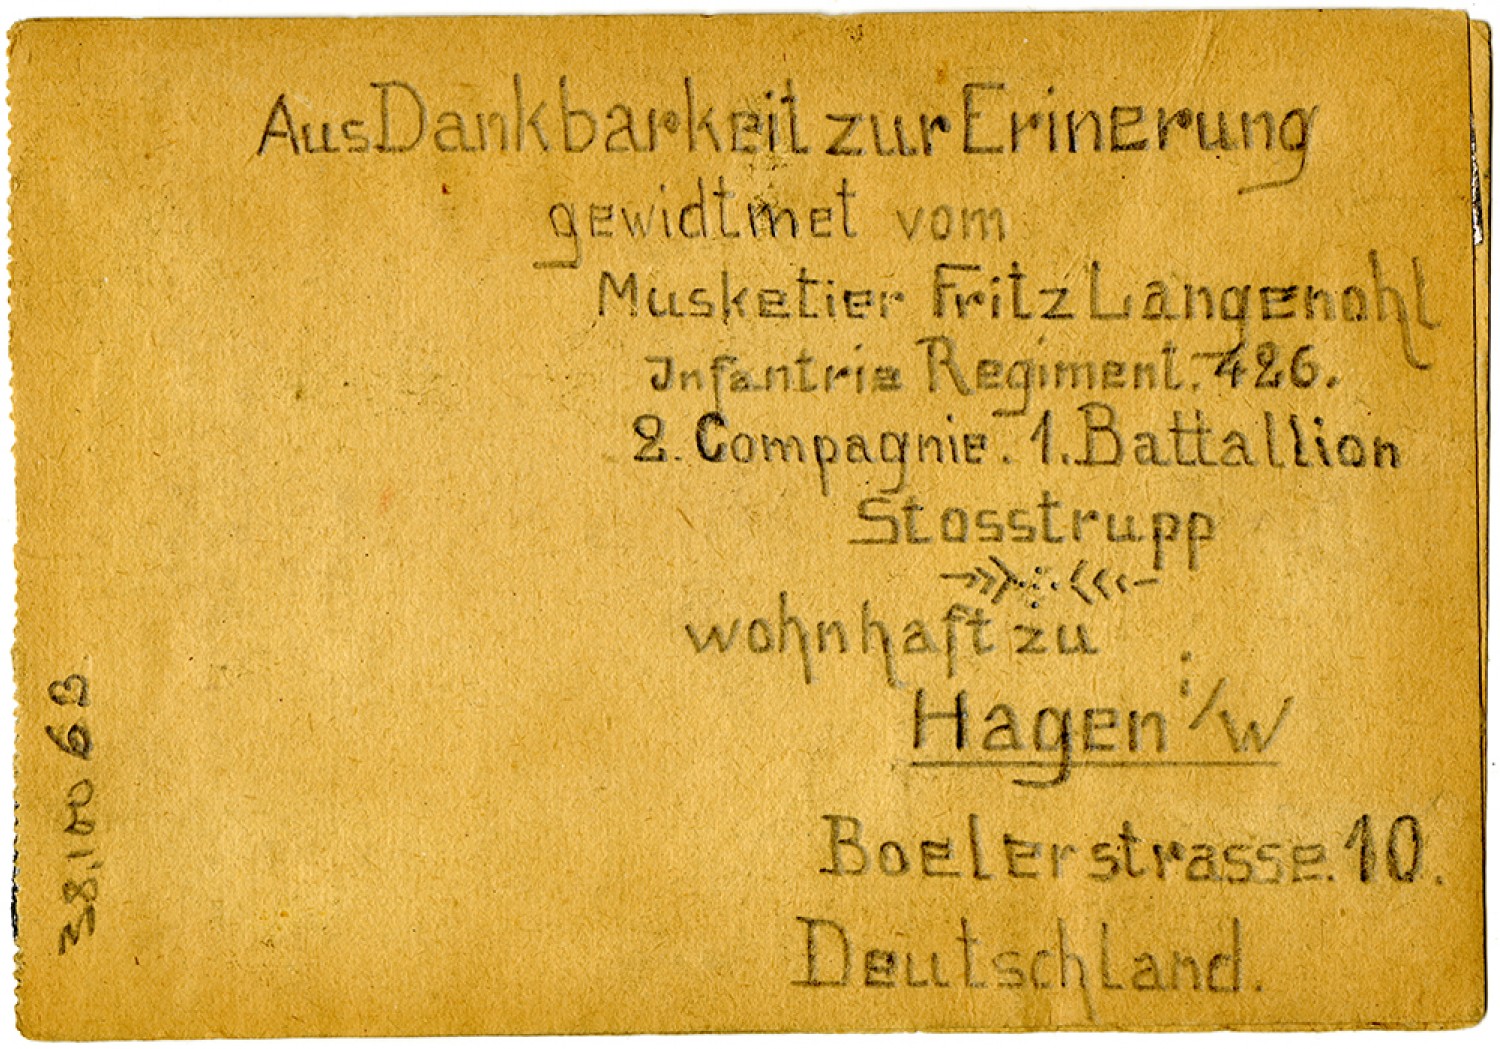 Aus Dankbarkeit zur Erinerung
gewidtmet vom
Musketier Fritz Langenohl
Infantrie Regiment. 426.
2. Compagnie. 1. Battallion
Stosstrupp
wohnhaft zu
Hagen i/W
Boelerstrasse. 10.
Deutschland.
38,100 6B